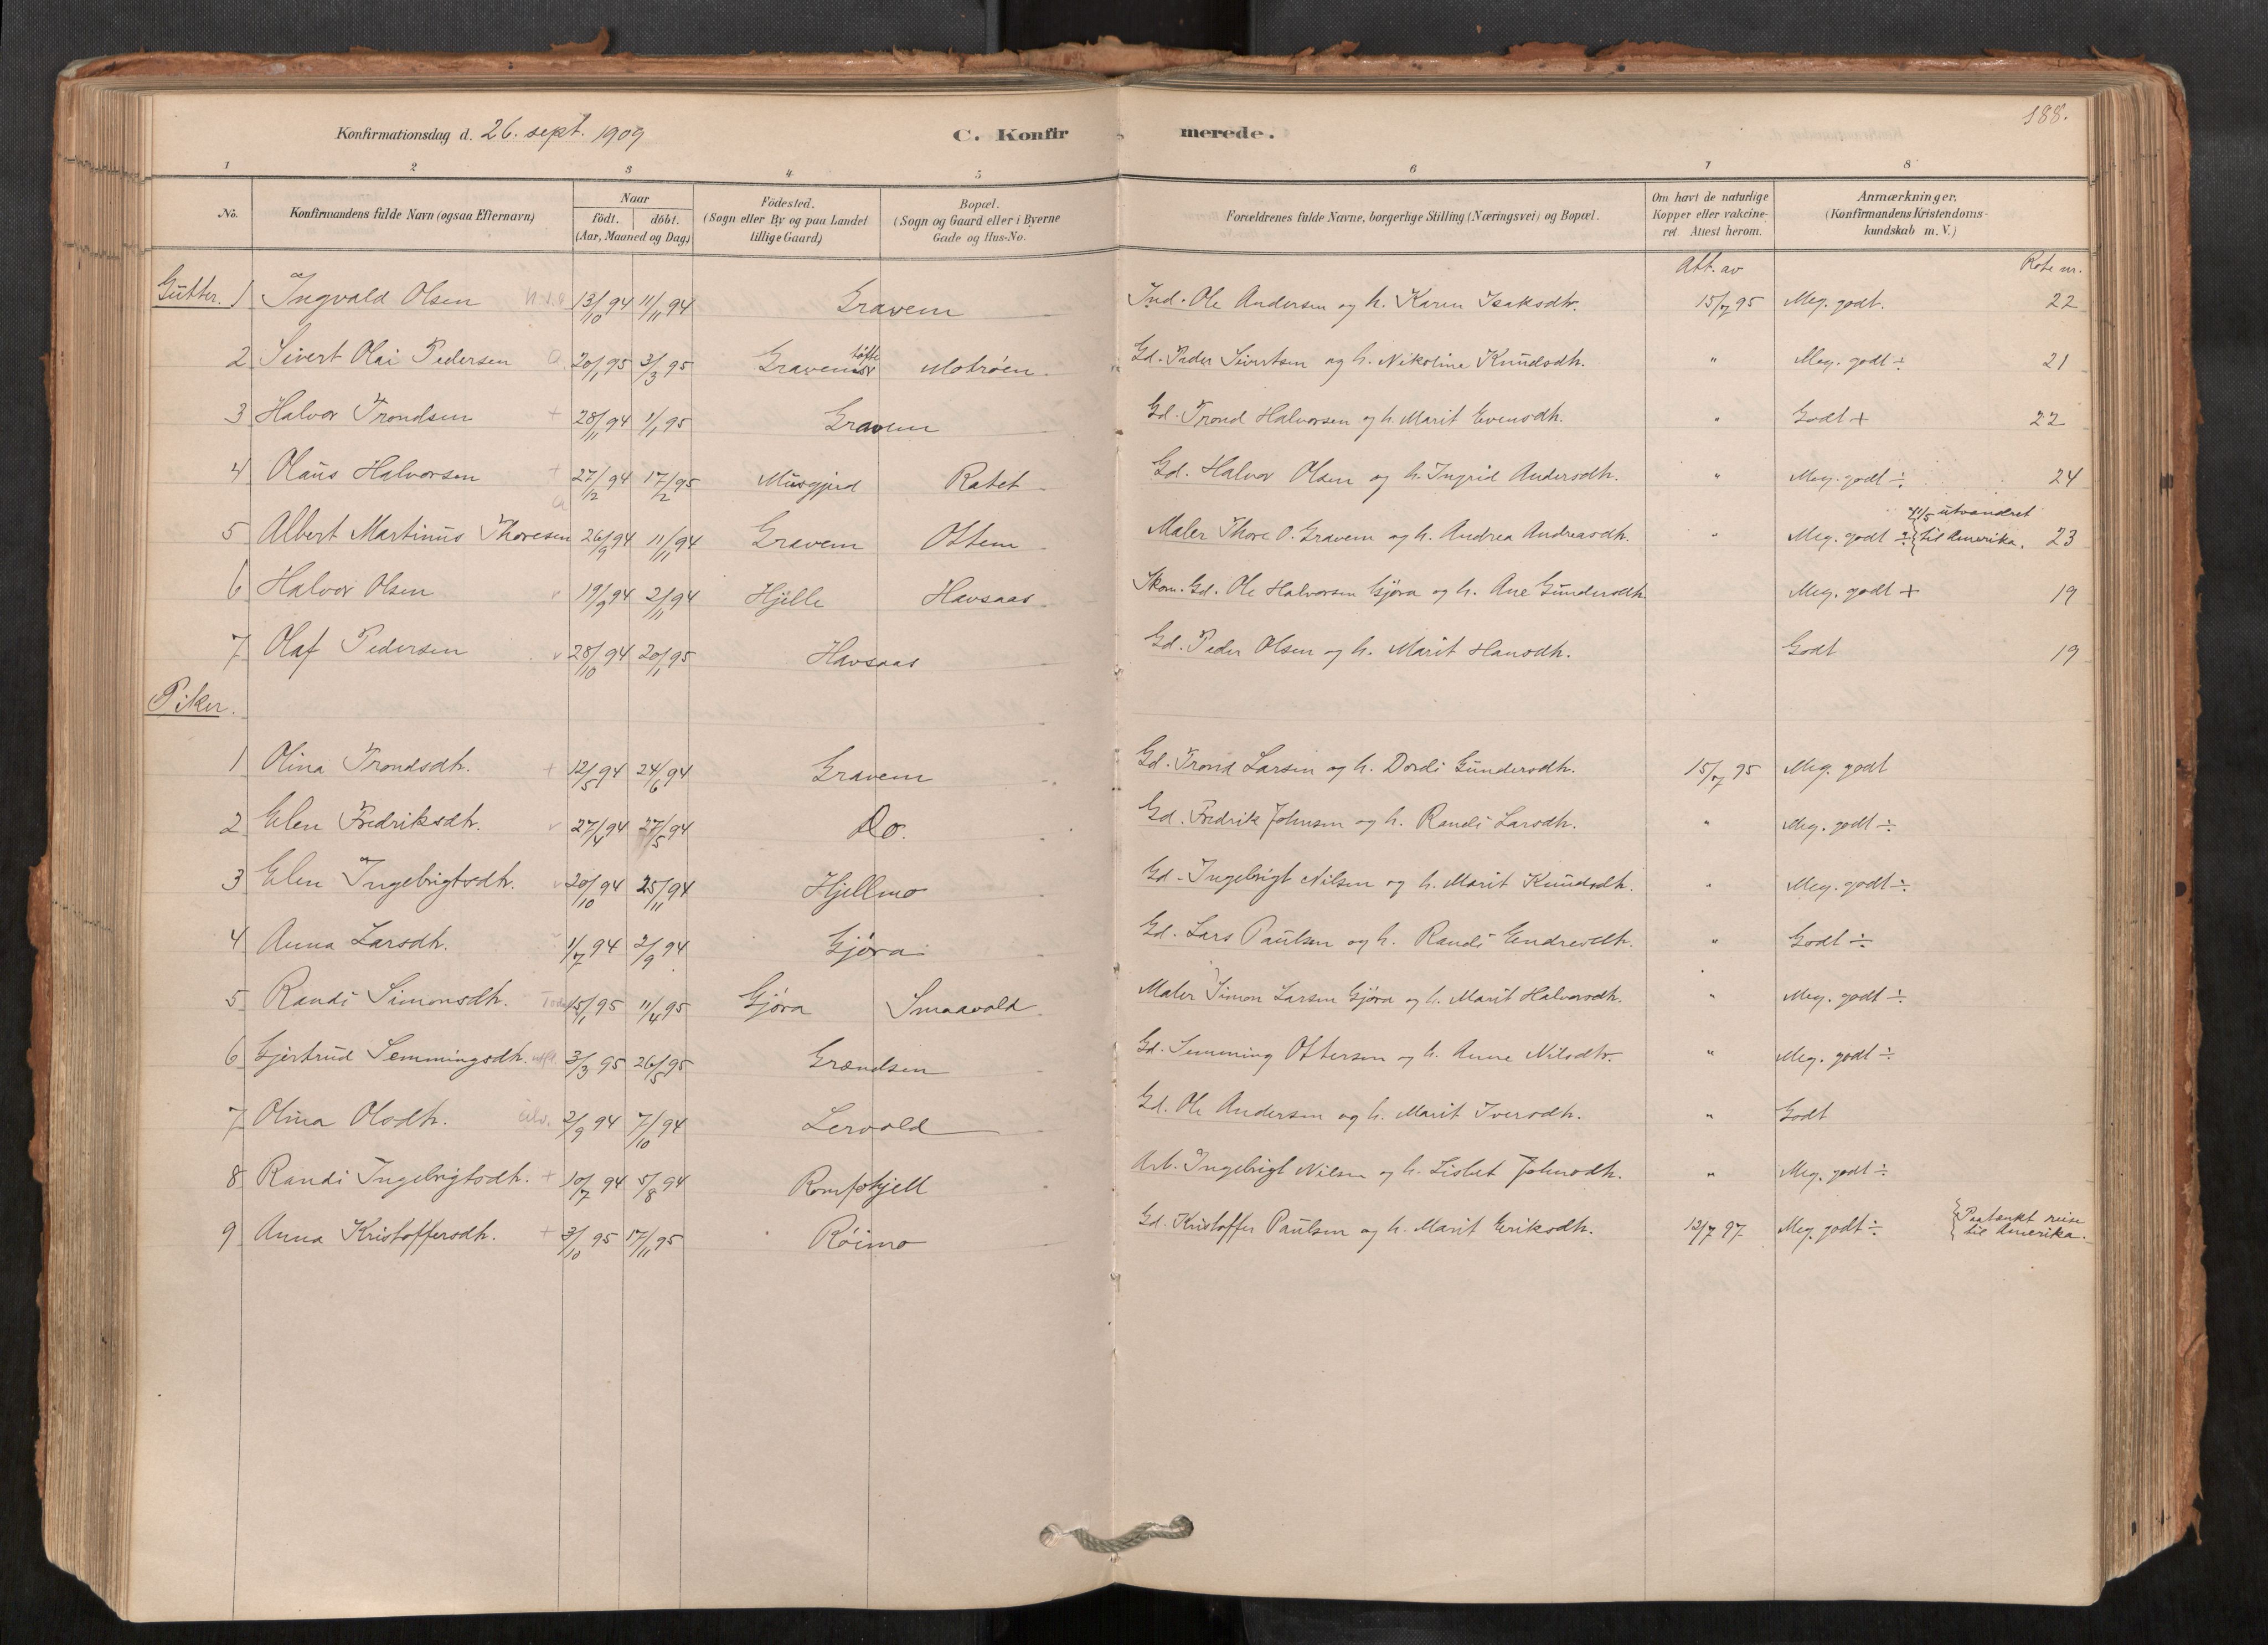 188.
Konfirmationsdag d. 26. sept. 1909 C. Konfirmerede.
1 2 3 4 5 6 7 8
No. Konfirmandens fulde Navn (ogsaa Efternavn) Naar födt. döbt. (Aar, Maaned og Dag) Födested. (Sogn eller By og paa Landet tillige Gaard) Bopæl. (Sogn og Gaard eller i Byerne Gade og Hus-No. Forældrenes fulde Navne, borgerlige Stilling (Næringsvei) og Bopæl. Om havt de naturlige Kopper eller vakcineret. Attest herom. Anmærkninger. (Konfirmandens Kristendomskundskab m. V.)
Att. av Rote nr.
Gutter. 1 Ingvald Olsen 13/10 94 11/11 94 Gravem Ind. Ole Andersen og h. Karen Isaksdtr. 15/7 95 Meg. godt. 22
2 Sivert Olai Pedersen 20/1 95 3/3 95 Gravem Motröen Gd. Peder Sivertsen og h. Nikoline Knudsdtr. " Meg. godt ÷ 21
3 Halvor Trondsen + 28/11 94 1/1 95 Gravem Gd. Trond Halvorsen og h. Marit Evensdtr. " Godt + 22
4 Olaus Halvorsen + 27/12 94 17/2 95 Musgjerd Ratet Gd. Halvor Olsen og h. Ingrid Andersdtr. " Meg. godt ÷ 24
5 Albert Martinus Thoresen 26/9 94 11/11 94 Gravem Ottem Maler Thore O. Gravem og h. Andrea Andreasdtr. " Meg. godt ÷ { utvandret til Amerika. 23
6 Halvor Olsen v 19/9 94 2/11 94 Hjelle Havsaas Skom. Gd. Ole Halvorsen Gjöra og h. Ane Gundersdtr. Meg. godt + 19
7 Olaf Pedersen v 28/10 94 20/1 95 Havsaas Gd. Peder Olsen og h. Marit Hansdtr. Godt 19
Piker.
1 Olina Trondsdtr. + 12/5 94 24/6 94 Gravem Gd. Trond Larsen og h. Dordi Gundersdtr. 15/7 95 Meg. godt
2 Elen Fredriksdtr. v 27/4 94 27/5 94 Do. Gd. Fredrik Johnsen og h. Randi Larsdtr. " Meg. godt ÷
3 Elen Ingebrigtsdtr. v 20/10 94 25/11 94 Hjellmo Gd. Ingebrigt Nilsen og h. Marit Knudsdtr. " Meg. godt ÷
4 Anna Larsdtr. 1/7 94 2/9 94 Gjöra Gd. Lars Paulsen og h. Randi Endresdtr. " Godt ÷
5 Randi Simonsdtr. 15/1 95 11/4 95 Gjöra Smaavold Maler Simon Larsen Gjöra og h. Marit Halvorsdtr. " Meg. godt ÷
6 Gjertrud Semmingsdtr. 3/3 95 26/5 95 Grændsen Gd. Semming Ottersen og h. Anne Nilsdtr. " Meg. godt ÷
7 Olina Olsdtr. 2/9 94 7/10 94 Lervold Gd. Ole Andersen og h. Marit Iversdtr. " Godt
8 Randi Ingebrigtsdtr. + 10/7 94 5/8 94 Romfohjell Arb. Ingebrigt Nilsen og h. Lisbet Johnsdtr. " Meg. godt ÷
9 Anna Kristoffersdtr. + 3/10 95 17/11 95 Röimo Gd. Kristoffer Paulsen og h. Marit Eriksdtr. 12/7 97 Meg. godt ÷ { Paatænkt reise til Amerika.